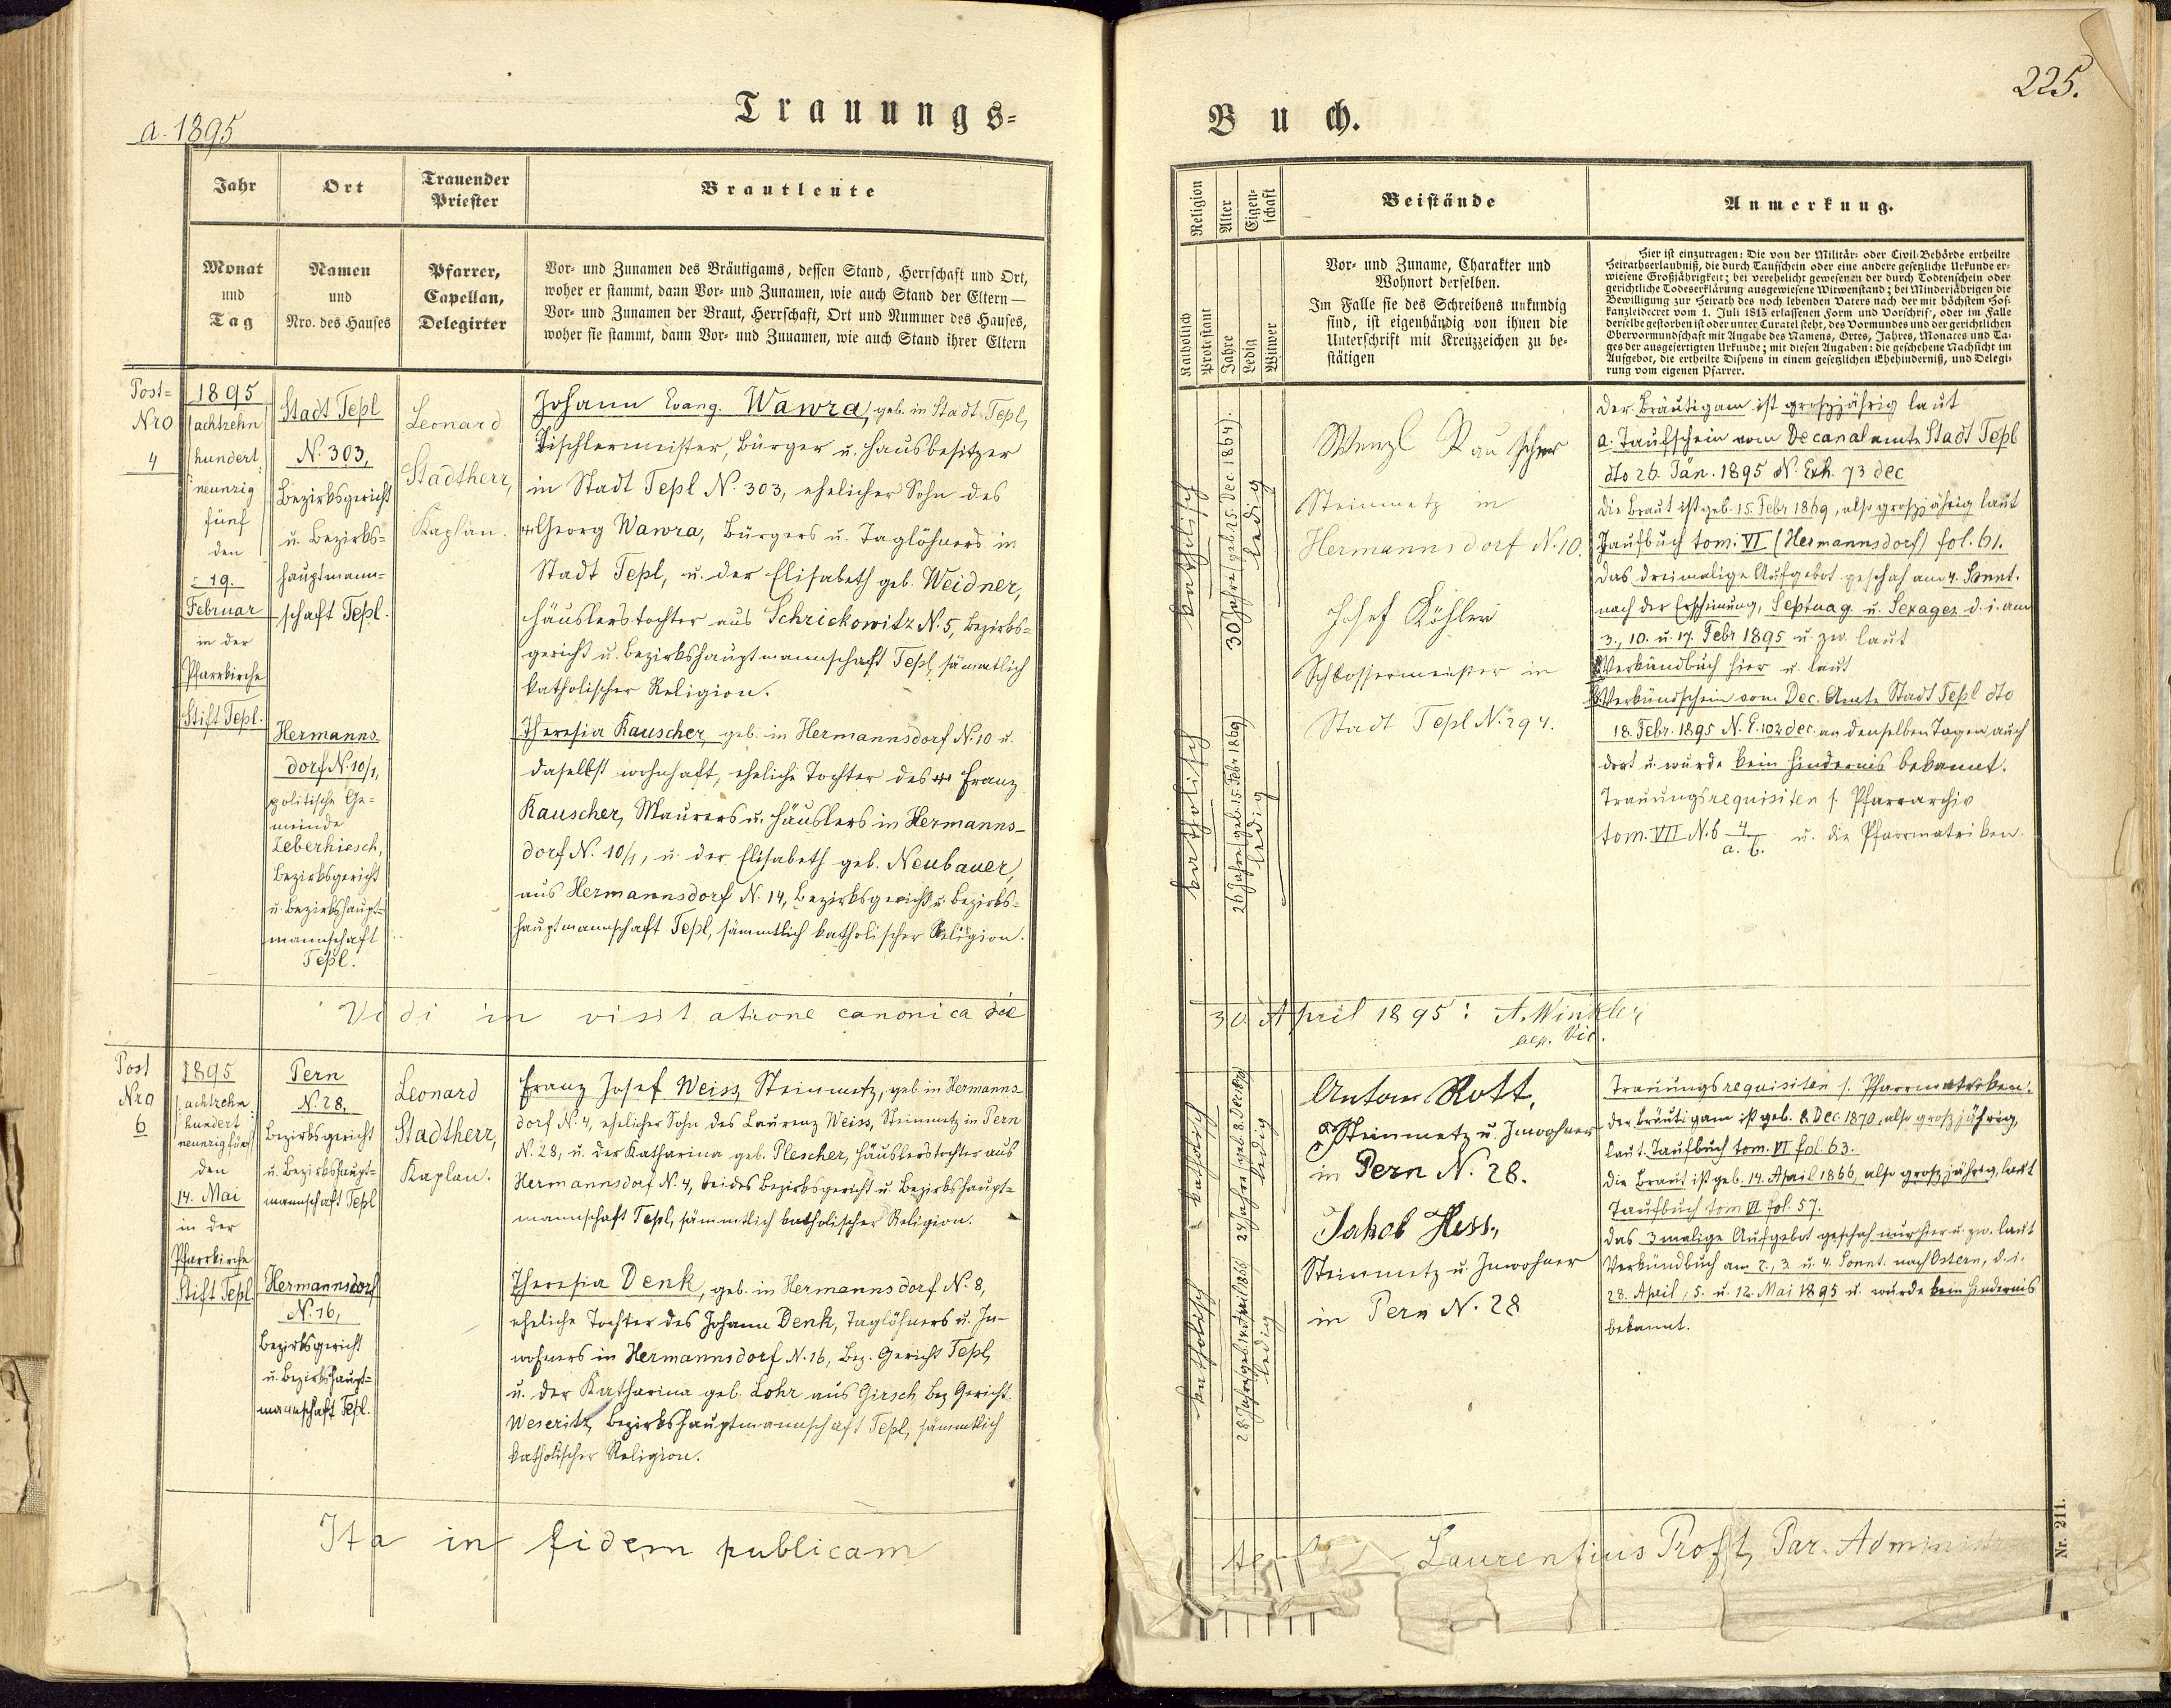 a. 1895
Trauungs=
Jahr
Ort
Trauender
Priester
Brautleute
Monat
und
Tag
Namen
und
Nro. des Hauses
Pfarrer,
Capellan,
Delegirter
Vor- und Zunamen des Bräutigams, dessen Stand, Herrschaft und Ort,
woher er stammt, dann Vor- und Zunamen, wie auch Stand der Eltern —
Vor- und Zunamen der Braut, Herrschaft, Ort und Nummer des Hauses,
woher sie stammt, dann Vor- und Zunamen, wie auch Stand ihrer Eltern
Post=
Nro
4
1895
achtzehn
hundert
neunzig
fünf
den
19.
Februar
in der
Pfarrkirche
Stift Tepl.
Stadt Tepl
N. 303,
Bezirksgericht
u. Bezirks=
hauptmann=
schaft Tepl.
Hermanns-
dorf N. 10/1,
politische Ge=
meinde
Zeberhiesch,
Bezirksgericht
u. Bezirkshaupt=
mannschaft
Tepl.
Leonard
Stadtherr,
Kaplan.
Johann Evang. Wawra, geb. in Stadt Tepl,
Tischlermeister, Bürger u. Hausbesitzer
in Stadt Tepl N. 303, ehelicher Sohn des
Georg Wawra, Bürgers u. Taglöhners in
Stadt Tepl, u. der Elisabeth geb. Weidner,
Häuslerstochter aus Schrickowitz N. 5, Bezirks=
gericht u. Bezirkshauptmannschaft Tepl, sämmtlich
katholischer Religion.
Theresia Rauscher, geb. in Hermannsdorf N. 10 u.
daselbst wohnhaft, eheliche Tochter des Franz
Rauscher, Maurers u. Häuslers in Hermanns-
dorf N. 10/1, u. der Elisabeth geb. Neubauer,
aus Hermannsdorf N. 14, Bezirksgericht u. Bezirks=
hauptmannschaft Tepl, sämmtlich katholischer Religion.
Vidi in visitatione canonica die
Post
Nro
6
1895
achtzehn
hundert
neunzig fünf
den
14. Mai
in der
Pfarrkirche
Stift Tepl
Pern
N. 28,
Bezirksgericht
u. Bezirkshaupt=
mannschaft Tepl
Hermannsdorf
N. 16,
Bezirksgericht
u. Bezirkshaupt=
mannschaft Tepl.
Leonard
Stadtherr,
Kaplan.
Franz Josef Weiss, Steinmetz, geb. in Hermanns-
dorf N. 4, ehelicher Sohn des Laurenz Weiss, Steinmetz in Pern
N. 28, u. der Katharina geb. Plescher, Häuslerstochter aus
Hermannsdorf N. 4, beides Bezirksgericht u. Bezirkshaupt=
mannschaft Tepl, sämmtlich katholischer Religion.
Theresia Denk, geb. in Hermannsdorf N. 8,
eheliche Tochter des Johann Denk, Taglöhners u. In-
wohners in Hermannsdorf N. 16, Bez. Gericht Tepl,
u. der Katharina geb. Lohr aus Girsch, Bez Gericht
Weseritz, Bezirkshauptmannschaft Tepl, sämmtlich
katholischer Religion.
Ita in fidem publicam
225.
Buch.
Religion
Alter
Eigen-
schaft
Beistände
Anmerkung.
Katholisch
Protestant
Jahre
Ledig
Witwer
Vor- und Zuname, Charakter und
Wohnort derselben.
Im Falle sie des Schreibens unkundig
sind, ist eigenhändig von ihnen die
Unterschrift mit Kreuzzeichen zu be-
stätigen
Hier ist einzutragen: Die von der Militär- oder Civil-Behörde ertheilte
Heirathserlaubniß, die durch Taufschein oder eine andere gesetzliche Urkunde er-
wiesene Großjährigkeit; bei verehelicht gewesenen der durch Todtenschein oder
gerichtliche Todeserklärung ausgewiesene Witwenstand; bei Minderjährigen die
Bewilligung zur Heirath des noch lebenden Vaters nach der mit höchstem Hof-
kanzleidecret vom 1. Juli 1813 erlassenen Form und Vorschrift, oder im Falle
derselbe gestorben ist oder unter Curatel steht, des Vormundes und der gerichtlichen
Obervormundschaft mit Angabe des Namens, Ortes, Jahres, Monates und Ta-
ges der ausgefertigten Urkunde; mit diesen Angaben: die geschehene Nachsicht im
Aufgebot, die ertheilte Dispens in einem gesetzlichen Ehehinderniß, und Delegi-
rung vom eigenen Pfarrer.
katholisch
30 Jahre (geb. 15. Dec. 1864).
ledig
katholisch
26 Jahre (geb. 15. Febr 1869)
ledig
Wenzl Rauscher
Steinmetz in
Hermannsdorf N. 10.
Josef Köhler
Schlossermeister in
Stadt Tepl N. 294.
Der Bräutigam ist großjährig laut
a. Taufschein vom Decanalamte Stadt Tepl
dto 26. Jän. 1895 N. Exh. 73 dec
Die Braut ist geb. 15. Febr 1869, also großjährig laut
Taufbuch tom. VI (Hermannsdorf) fol. 61.
Das dreimalige Aufgebot geschah am 4. Sonnt.
nach der Erscheinung, Septuag. u. Sexages. d. i. am
3., 10. u. 17. Febr 1895 u. zw. laut
Verkündbuch hier u. laut
b. Verkündschein vom Dec. Amte Stadt Tepl dto
18. Febr. 1895 N. E. 102 dec. an denselben Tagen auch
dort u. wurde kein Hindernis bekannt.
Trauungsrequisiten s. Pfarrarchiv
tom. VII N. 6 4/a. b. u. die Pfarrmatriken.
30. April 1895: A. Winkler
Vic.
katholisch
24 Jahre (geb. 8. Dec. 1870)
ledig
katholisch
28 Jahre (geb. 14 April 1866)
ledig
Anton Rott,
Steinmetz u. Inwohner
in Pern N. 28.
Jakob Hess,
Steinmetz u. Inwohner
in Pern N. 28
Trauungsrequisiten s. Pfarrmatriken.
Der Bräutigam ist geb. 8. Dec. 1870, also großjährig,
laut Taufbuch tom. VI fol. 63.
Die Braut ist geb. 14. April 1866, also großjährig, laut
Taufbuch tom VI fol. 57.
Das 3malige Aufgebot geschah nur hier u. zw. laut
Verkündbuch am 2., 3. u. 4. Sonnt. nach Ostern, d. i.
28. April, 5. u. 12. Mai 1895 u. wurde kein Hindernis
bekannt.
Laurentius Proft, Par. Administr
Nr. 211.